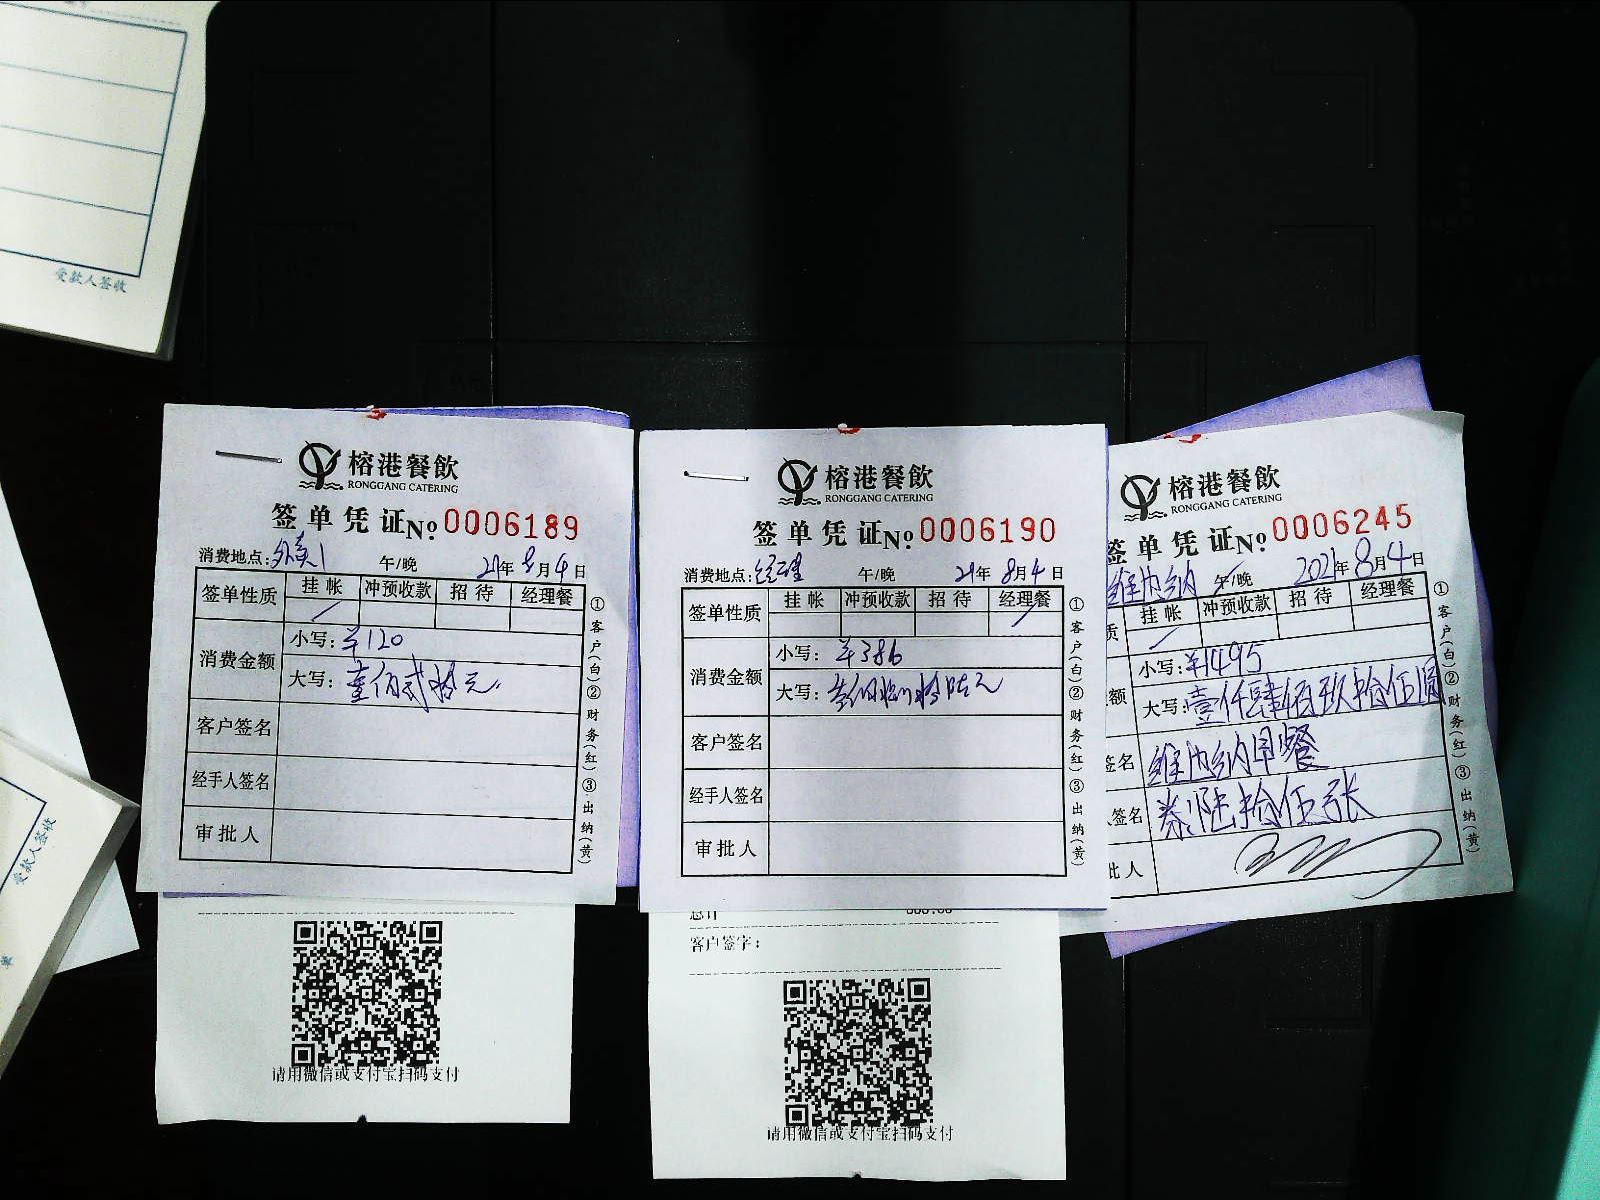 受款人签收
榕港餐飲
RONGGANG CATERING
签单凭证 No 0006189
消费地点：外卖1 午/晚 21年8月4日
签单性质 挂帐 冲预收款 招待 经理餐
消费金额 小写：¥120
大写：壹佰贰拾元
客户签名
经手人签名
审批人
①客户(白)②财务(红)③出纳(黄)
请用微信或支付宝扫码支付
榕港餐飲
RONGGANG CATERING
签单凭证 No 0006190
消费地点：经理 午/晚 21年8月4日
签单性质 挂帐 冲预收款 招待 经理餐
消费金额 小写：¥386
大写：
客户签名
经手人签名
审批人
①客户(白)②财务(红)③出纳(黄)
总计
客户签字：
请用微信或支付宝扫码支付
榕港餐飲
RONGGANG CATERING
签单凭证 No 0006245
维也纳 午/晚 2021年8月4日
质 挂帐 冲预收款 招待 经理餐
额 小写：¥1495
大写：壹仟肆佰玖拾伍圆
签名 维也纳早餐
签名 券陆拾伍张
批人
①客户(白)②财务(红)③出纳(黄)
受款人签收